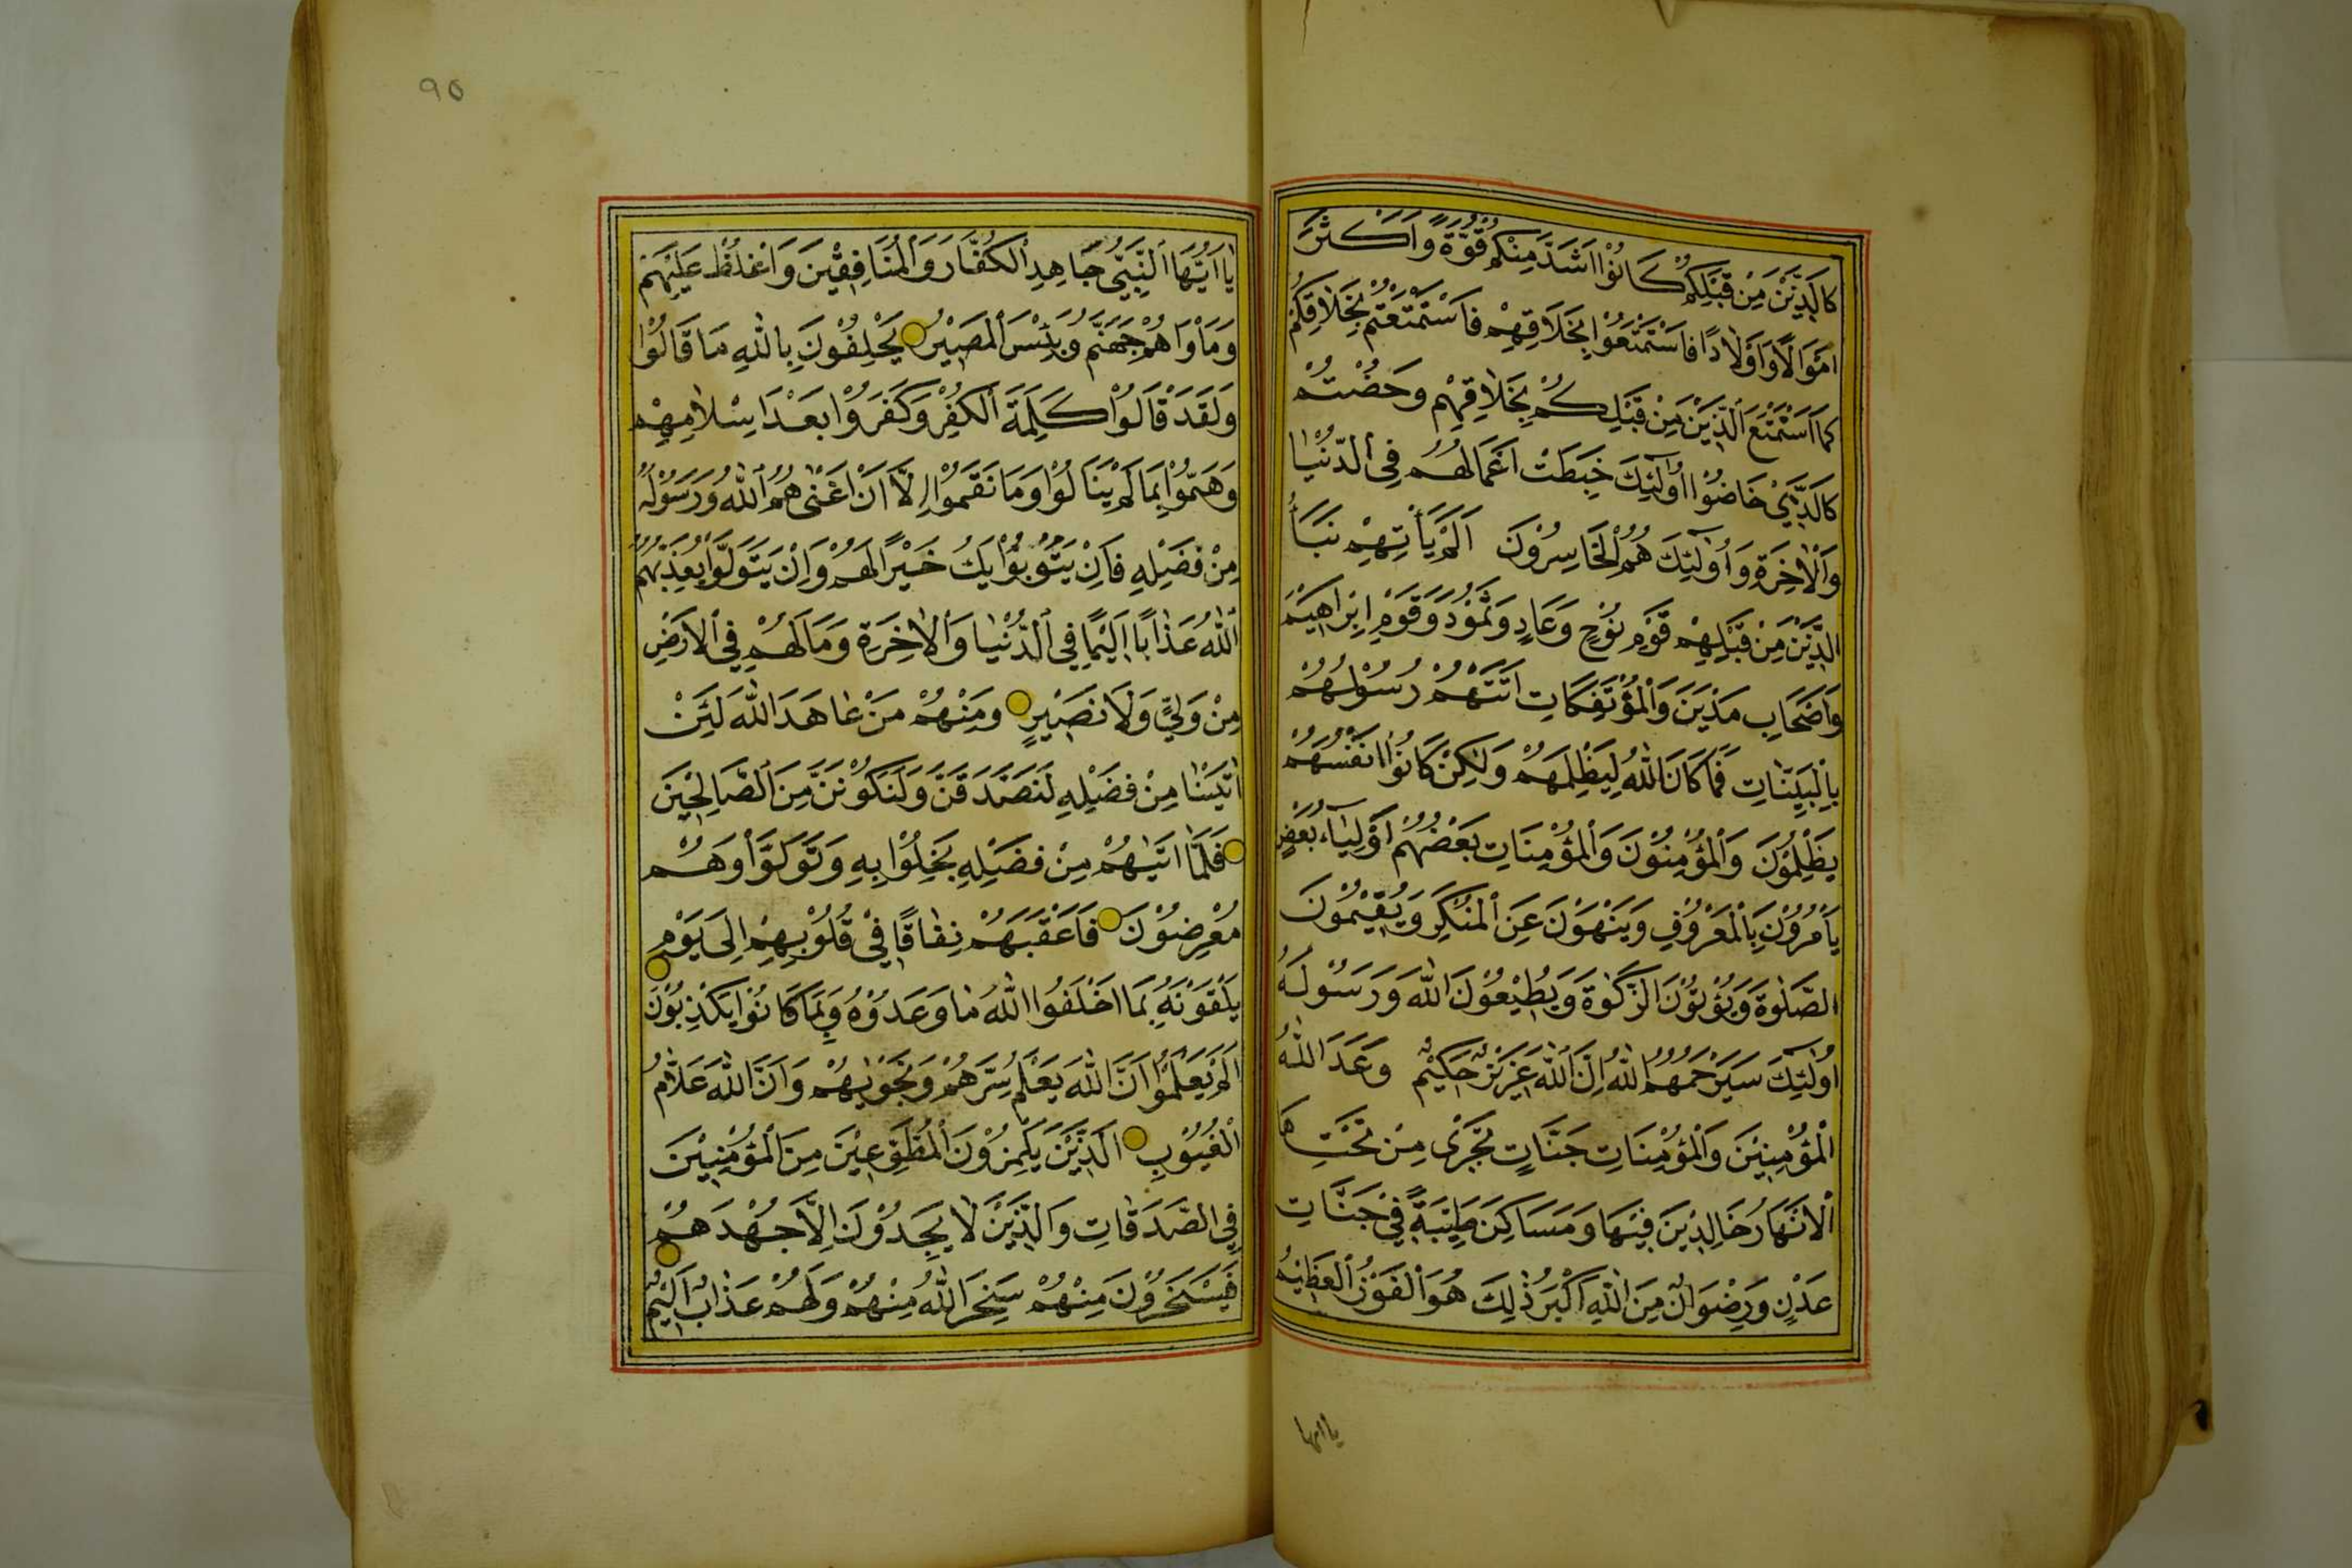 كَالَّذِينَ مِنْ قَبْلِكُمْ كَانُوْا اَشَدَّ مِنْكُمْ قُوَّةً وَاَكْثَرَ
اَمْوَالًا وَاَوْلَادًا فَاسْتَمْتَعُوْا بِخَلَاقِهِمْ فَاسْتَمْتَعْتُمْ بِخَلَاقِكُمْ
كَمَا اسْتَمْتَعَ الَّذِيْنَ مِنْ قَبْلِكُمْ بِخَلَاقِهِمْ وَخُضْتُمْ
كَالَّذِيْ خَاضُوْا اُولٰٓئِكَ حَبِطَتْ اَعْمَالُهُمْ فِى الدُّنْيَا
وَالْاٰخِرَةِ وَاُولٰٓئِكَ هُمُ الْخَاسِرُوْنَ اَلَمْ يَأْتِهِمْ نَبَأُ
الَّذِيْنَ مِنْ قَبْلِهِمْ قَوْمِ نُوْحٍ وَعَادٍ وَثَمُوْدَ وَقَوْمِ اِبْرَاهِيْمَ
وَاَصْحَابِ مَدْيَنَ وَالْمُؤْتَفِكَاتِ اَتَتْهُمْ رُسُلُهُمْ
بِالْبَيِّنَاتِ فَمَا كَانَ اللّٰهُ لِيَظْلِمَهُمْ وَلٰكِنْ كَانُوْا اَنْفُسَهُمْ
يَظْلِمُوْنَ وَالْمُؤْمِنُوْنَ وَالْمُؤْمِنَاتِ بَعْضُهُمْ اَوْلِيَآءُ بَعْضٍ
يَأْمُرُوْنَ بِالْمَعْرُوْفِ وَيَنْهَوْنَ عَنِ الْمُنْكَرِ وَيُقِيْمُوْنَ
الصَّلٰوةَ وَيُؤْتُوْنَ الزَّكٰوةَ وَيُطِيْعُوْنَ اللّٰهَ وَرَسُوْلَهُ
اُولٰٓئِكَ سَيَرْحَمُهُمُ اللّٰهُ اِنَّ اللّٰهَ عَزِيْزٌ حَكِيْمٌ وَعَدَ اللّٰهُ
الْمُؤْمِنِيْنَ وَالْمُؤْمِنَاتِ جَنَّاتٍ تَجْرِى مِنْ تَحْتِهَا
الْاَنْهَارُ خَالِدِيْنَ فِيْهَا وَمَسَاكِنَ طَيِّبَةً فِيْ جَنَّاتِ
عَدْنٍ وَرِضْوَانٌ مِنَ اللّٰهِ اَكْبَرُ ذٰلِكَ هُوَ الْفَوْزُ الْعَظِيْمُ
ياايها
٩٥
يٰا اَيُّهَا النَّبِيُّ جَاهِدِ الْكُفَّارَ وَالْمُنَافِقِيْنَ وَاغْلُظْ عَلَيْهِمْ
وَمَأْوَاهُمْ جَهَنَّمُ وَبِئْسَ الْمَصِيْرُ يَحْلِفُوْنَ بِاللّٰهِ مَا قَالُوْا
وَلَقَدْ قَالُوْا كَلِمَةَ الْكُفْرِ وَكَفَرُوْا بَعْدَ اِسْلَامِهِمْ
وَهَمُّوْا بِمَا لَمْ يَنَالُوْا وَمَا نَقَمُوْا اِلَّا اَنْ اَغْنٰىهُمُ اللّٰهُ وَرَسُوْلُهُ
مِنْ فَضْلِهِ فَاِنْ يَتُوْبُوْا يَكُ خَيْرًا لَهُمْ وَاِنْ يَتَوَلَّوْا يُعَذِّبْهُمُ
اللّٰهُ عَذَابًا اَلِيْمًا فِي الدُّنْيَا وَالْاٰخِرَةِ وَمَا لَهُمْ فِي الْاَرْضِ
مِنْ وَلِيٍّ وَلَا نَصِيْرٍ وَمِنْهُمْ مَنْ عَاهَدَ اللّٰهَ لَئِنْ
اٰتَيْنَا مِنْ فَضْلِهِ لَنَصَّدَّقَنَّ وَلَنَكُوْنَنَّ مِنَ الصَّالِحِيْنَ
فَلَمَّا اٰتٰيهُمْ مِنْ فَضْلِهِ بَخِلُوْا بِهِ وَتَوَلَّوْا وَهُمْ
مُعْرِضُوْنَ فَاَعْقَبَهُمْ نِفَاقًا فِيْ قُلُوْبِهِمْ اِلٰى يَوْمِ
يَلْقَوْنَهُ بِمَا اَخْلَفُوا اللّٰهَ مَا وَعَدُوْهُ وَبِمَا كَانُوْا يَكْذِبُوْنَ
اَلَمْ يَعْلَمُوْا اَنَّ اللّٰهَ يَعْلَمُ سِرَّهُمْ وَنَجْوٰيهُمْ وَاَنَّ اللّٰهَ عَلَّامُ
الْغُيُوْبِ اَلَّذِيْنَ يَلْمِزُوْنَ الْمُطَّوِّعِيْنَ مِنَ الْمُؤْمِنِيْنَ
فِي الصَّدَقَاتِ وَالَّذِيْنَ لَا يَجِدُوْنَ اِلَّا جُهْدَهُمْ
فَيَسْخَرُوْنَ مِنْهُمْ سَخِرَ اللّٰهُ مِنْهُمْ وَلَهُمْ عَذَابٌ اَلِيْمٌ